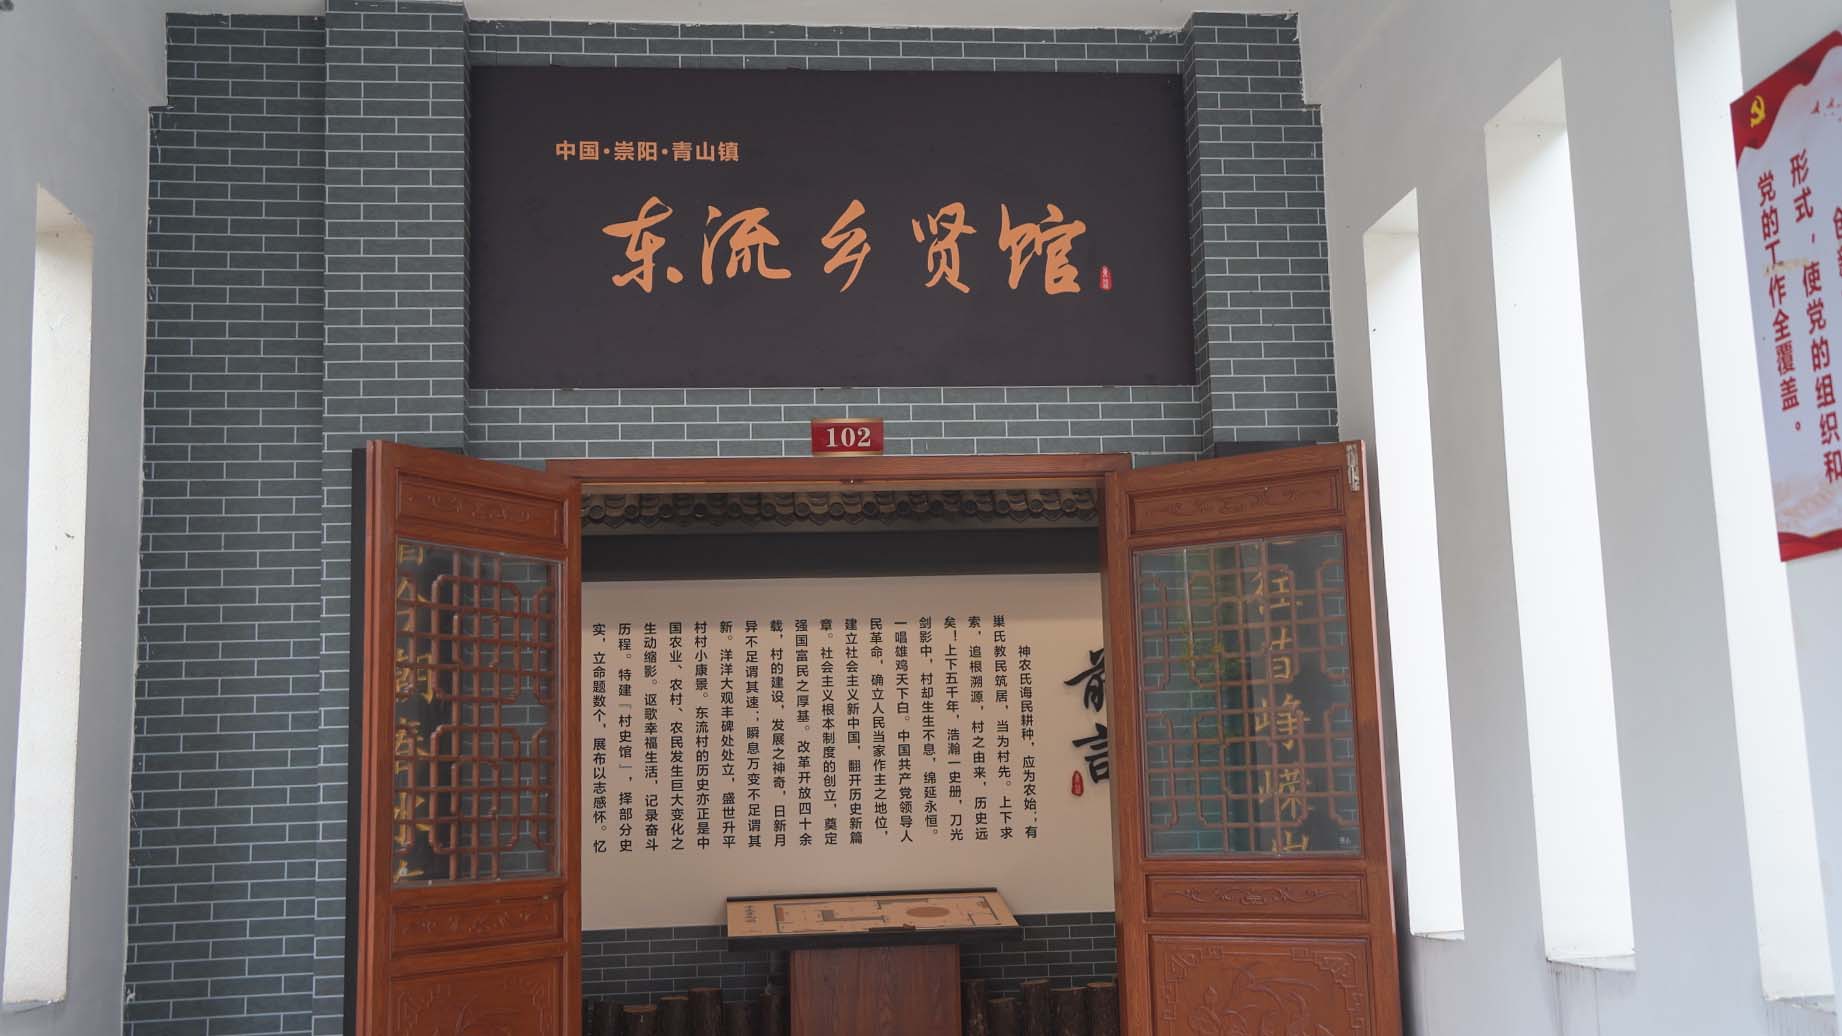 中国·崇阳·青山镇
东流乡贤馆
102
前言
神农氏诲民耕种，应为农始；有
巢氏教民筑居，当为村先。上下求
索，追根溯源，村之由来，历史远
矣！上下五千年，浩瀚一史册，刀光
剑影中，村却生生不息，绵延永恒。
一唱雄鸡天下白。中国共产党领导人
民革命，确立人民当家作主之地位，
建立社会主义新中国，翻开历史新篇
章。社会主义根本制度的创立，奠定
强国富民之厚基。改革开放四十余
载，村的建设，发展之神奇，日新月
异不足谓其速；瞬息万变不足谓其
新。洋洋大观丰碑处处立，盛世升平
村村小康景。东流村的历史亦正是中
国农业、农村、农民发生巨大变化之
生动缩影。讴歌幸福生活，记录奋斗
历程。特建『村史馆』，择部分史
实，立命题数个，展布以志感怀。忆
往昔峥嵘
形式，使党的组织和
党的工作全覆盖。